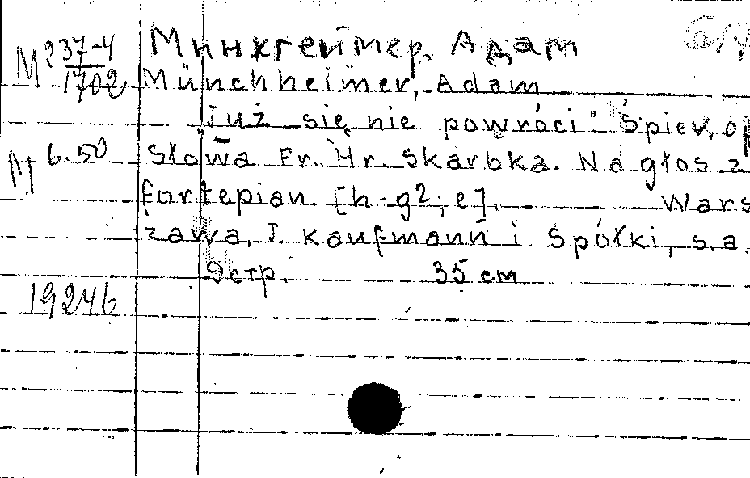 М 237-4 Минхгеймер, Адам
1702 Münchheimer, Adam
"Już się nie powróci" Śpiew, op
М 6.50 Słowa Fr. Hr. Skarbka. Na głos z
fortepian [h-g2; e]. Wars
zawa, J. Kaufmann i Spółki, s.a.
9 стр. 35 см
19246